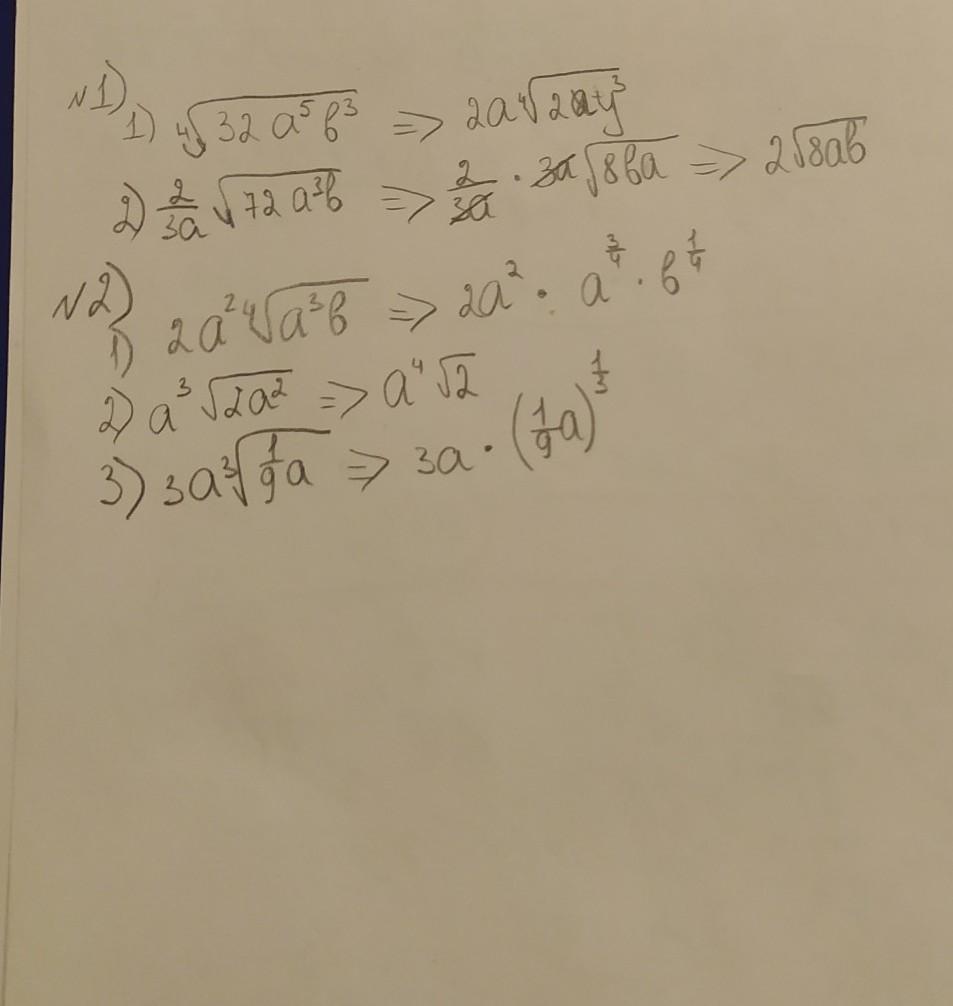 №1)
1) ⁴√(32a⁵b³) => 2a⁴√(2ay³)
2) 2/3a √(72a³b) => 2/3a · 3a√(8ba) => 2√(8ab)
№2)
1) 2a² ⁴√(a³b) => 2a² · a^(3/4) · b^(1/4)
2) a³√(2a²) => a⁴√2
3) 3a³√(1/9 a) => 3a · (1/9 a)^(1/3)